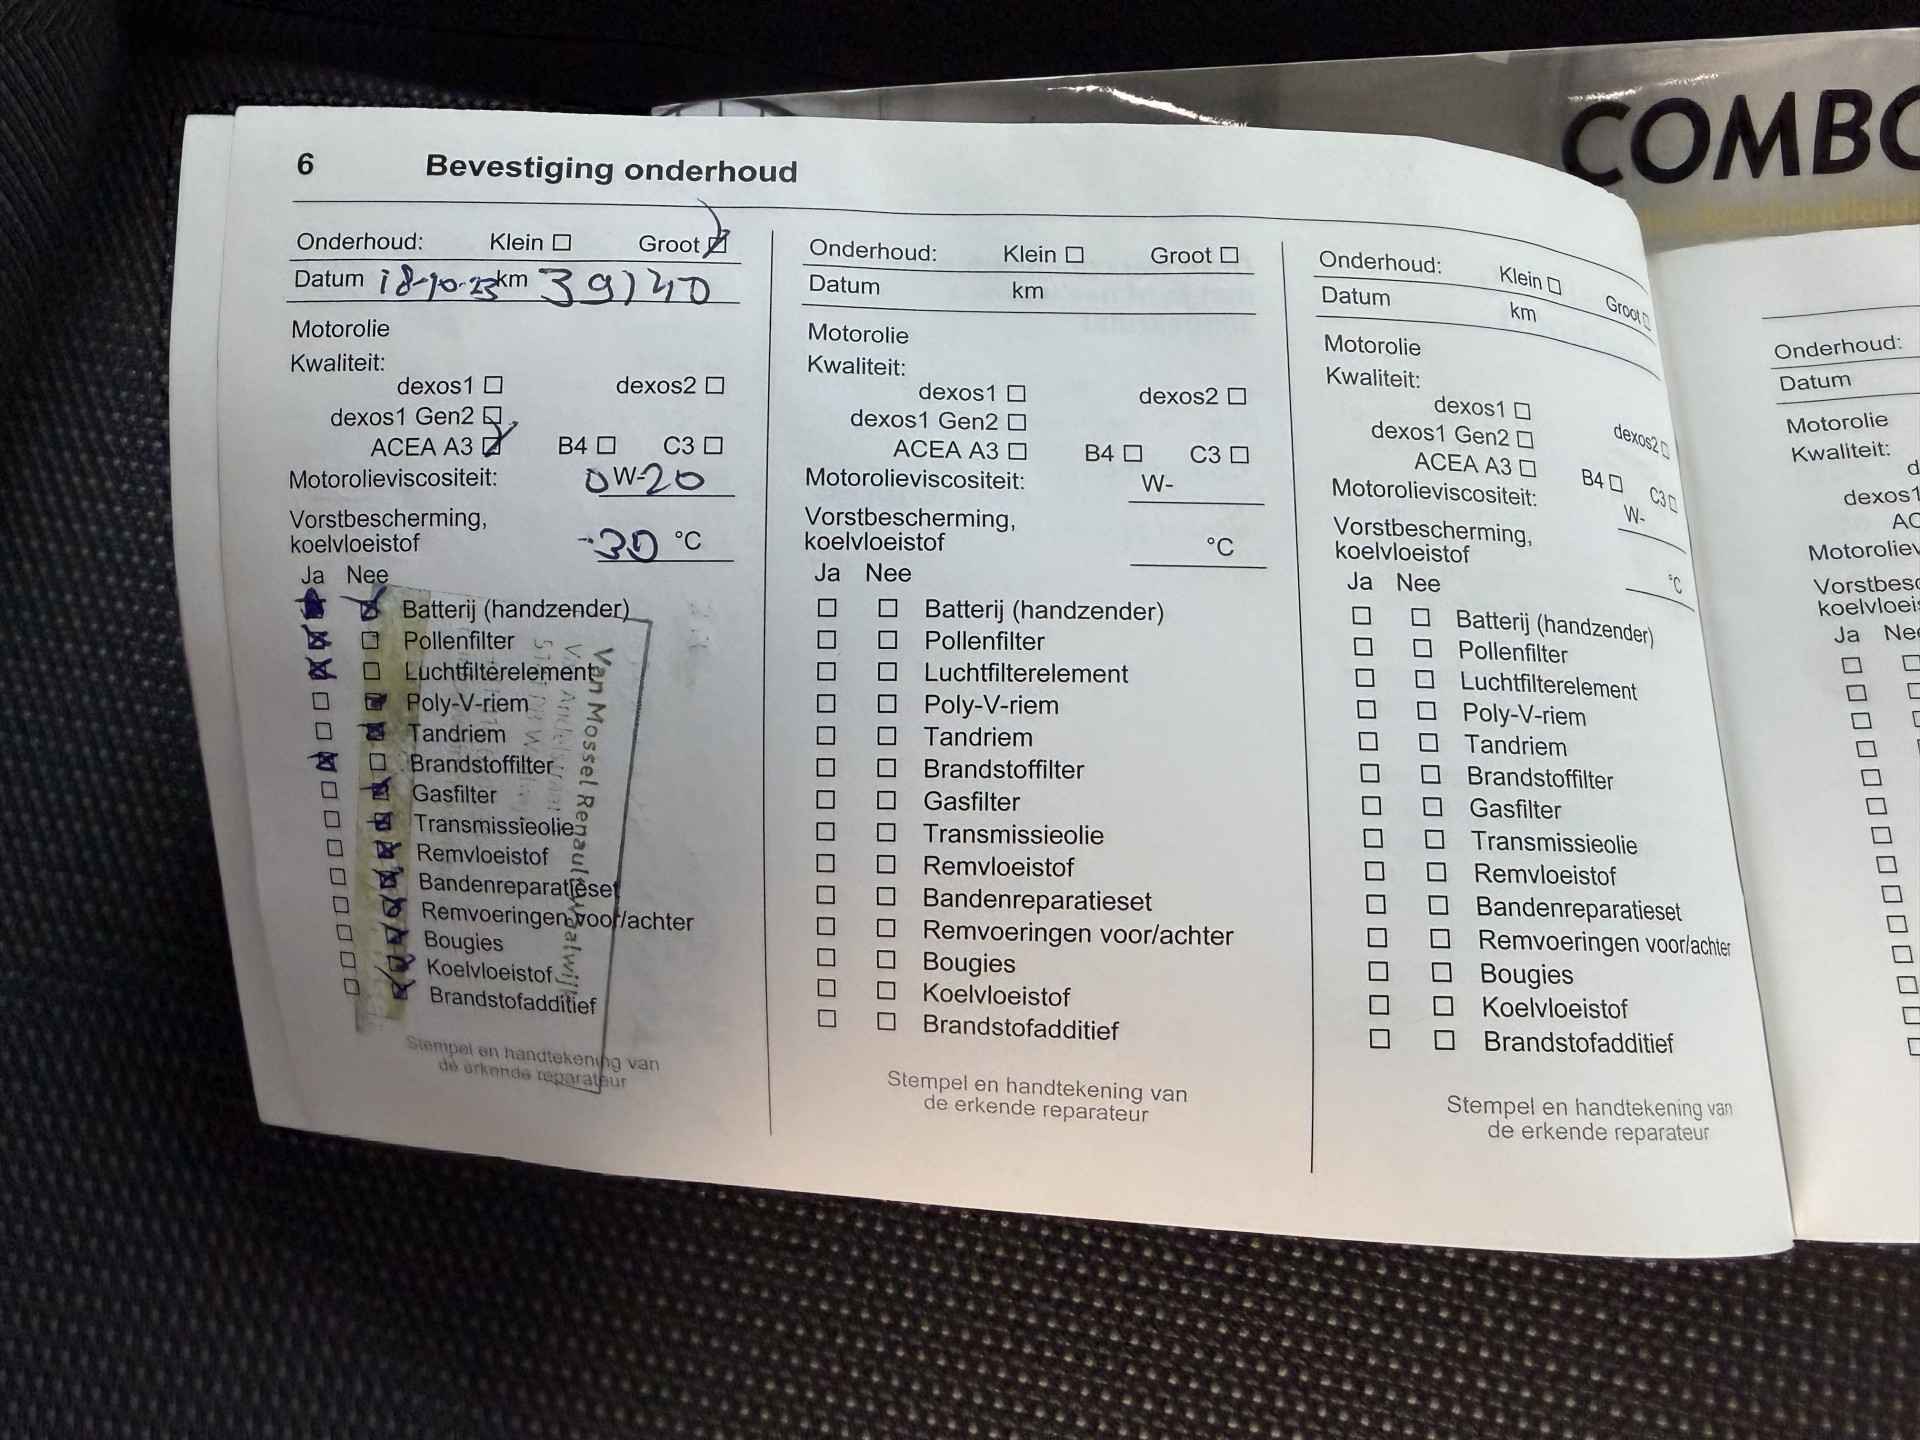 COMBO
6 Bevestiging onderhoud
Onderhoud: Klein Groot
Datum 18-10-23 km 39140
Motorolie
Kwaliteit:
dexos1 dexos2
dexos1 Gen2
ACEA A3 B4 C3
Motorolieviscositeit: 0W-20
Vorstbescherming,
koelvloeistof -30 °C
Ja Nee
Batterij (handzender)
Pollenfilter
Luchtfilterelement
Poly-V-riem
Tandriem
Brandstoffilter
Gasfilter
Transmissieolie
Remvloeistof
Bandenreparatieset
Remvoeringen voor/achter
Bougies
Koelvloeistof
Brandstofadditief
Van Mossel Renault Waalwijk
Stempel en handtekening van
de erkende reparateur
Onderhoud: Klein Groot
Datum km
Motorolie
Kwaliteit:
dexos1 dexos2
dexos1 Gen2
ACEA A3 B4 C3
Motorolieviscositeit: W-
Vorstbescherming,
koelvloeistof °C
Ja Nee
Batterij (handzender)
Pollenfilter
Luchtfilterelement
Poly-V-riem
Tandriem
Brandstoffilter
Gasfilter
Transmissieolie
Remvloeistof
Bandenreparatieset
Remvoeringen voor/achter
Bougies
Koelvloeistof
Brandstofadditief
Stempel en handtekening van
de erkende reparateur
Onderhoud: Klein Groot
Datum km
Motorolie
Kwaliteit:
dexos1 dexos2
dexos1 Gen2
ACEA A3 B4 C3
Motorolieviscositeit: W-
Vorstbescherming,
koelvloeistof °C
Ja Nee
Batterij (handzender)
Pollenfilter
Luchtfilterelement
Poly-V-riem
Tandriem
Brandstoffilter
Gasfilter
Transmissieolie
Remvloeistof
Bandenreparatieset
Remvoeringen voor/achter
Bougies
Koelvloeistof
Brandstofadditief
Stempel en handtekening van
de erkende reparateur
Onderhoud:
Datum
Motorolie
Kwaliteit:
dexos1
AC
Motoroliev
Vorstbesc
koelvloeis
Ja Nee